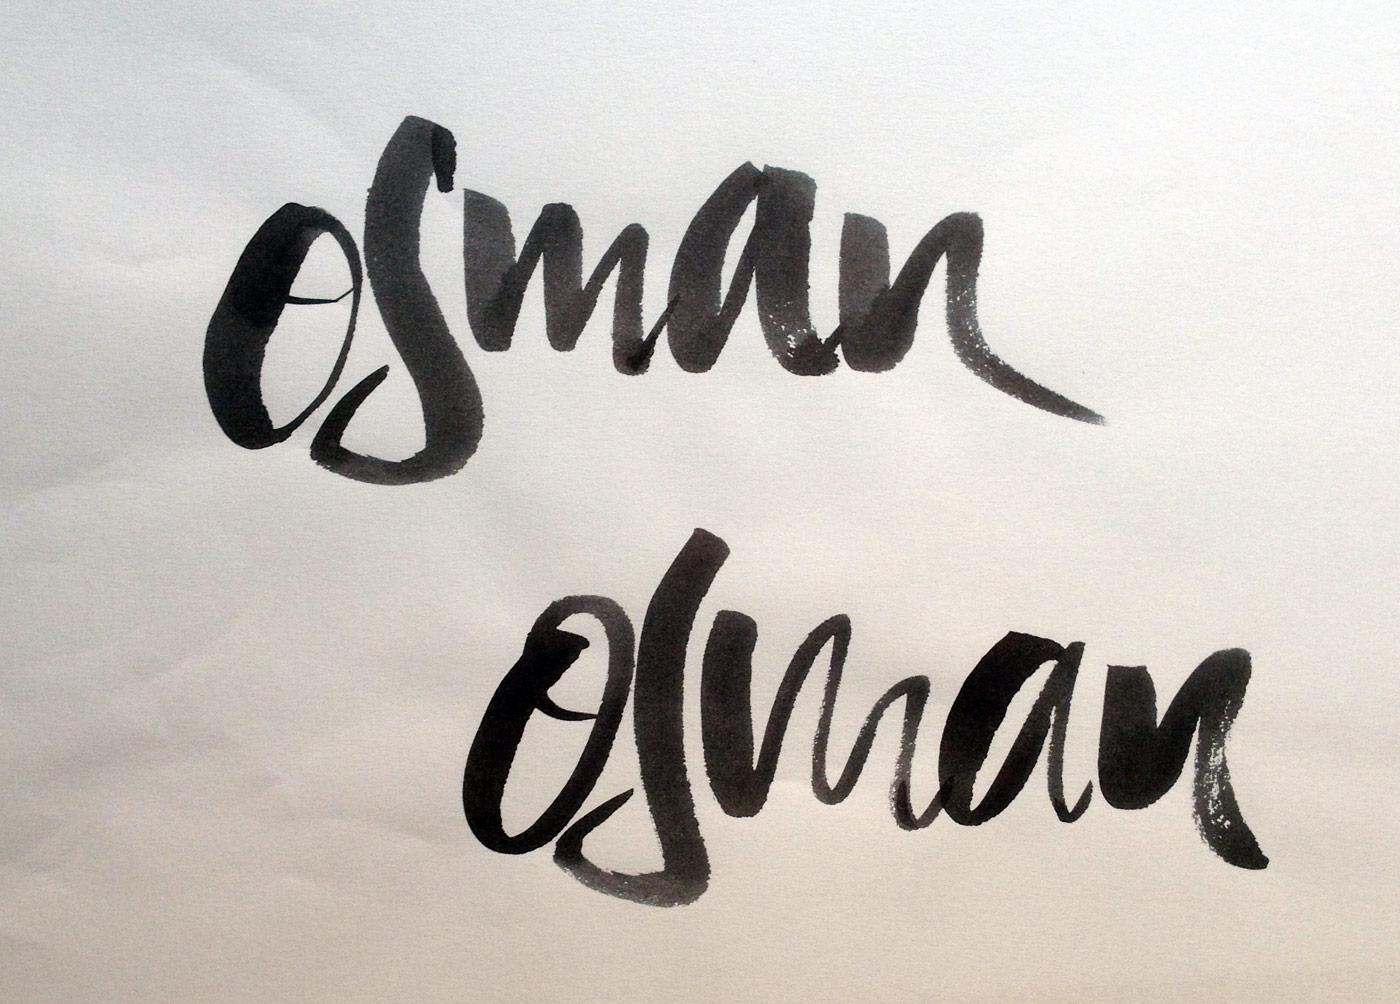 osman
osman